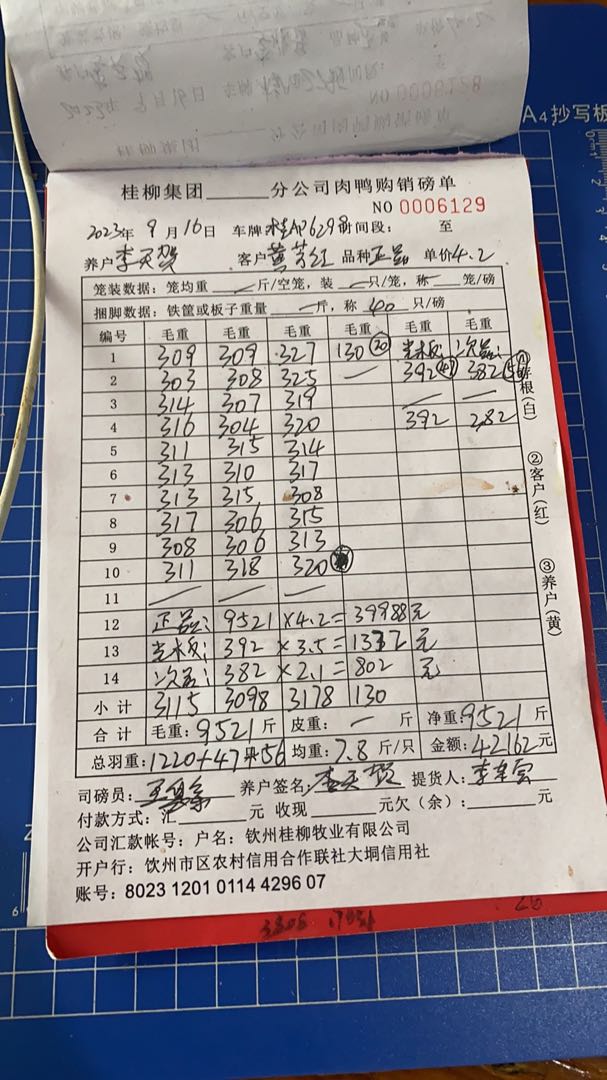 A4抄写板
桂柳集团______分公司肉鸭购销磅单
NO 0006129
2023年 9月16日 车牌 桂AP6298 时间段: 至
养户 李天贺 客户 黄芳红 品种 正品 单价 4.2
笼装数据: 笼均重 — 斤/空笼, 装 — 只/笼, 称 — 笼/磅
捆脚数据: 铁筐或板子重量 — 斤, 称 40 只/磅
编号 毛重 毛重 毛重 毛重 毛重 毛重
1 309 309 327 130 (20) 次品:
2 303 308 325 — 392 (47) 382
3 314 307 319 — —
4 316 304 320 392 2,82
5 311 315 314
6 313 310 317
7 313 315 308
8 317 306 315
9 308 306 313
10 311 318 320
11 — — —
12 正品: 9521 ×4.2= 39988元
13 392 ×3.5= 元
14 次品: 382 ×2.1= 802 元
小计 3115 3098 3178 130
合计 毛重: 9521斤 皮重: — 斤 净重: 9521斤
总羽重: 1220+47+56 均重: 7.8斤/只 金额: 42162元
司磅员: 养户签名: 李天贺 提货人:
付款方式: 汇______元 收现______元欠(余):______元
公司汇款帐号: 户名: 钦州桂柳牧业有限公司
开户行: 钦州市区农村信用合作联社大垌信用社
账号: 8023 1201 0114 4296 07
①存根(白)
②客户(红)
③养户(黄)